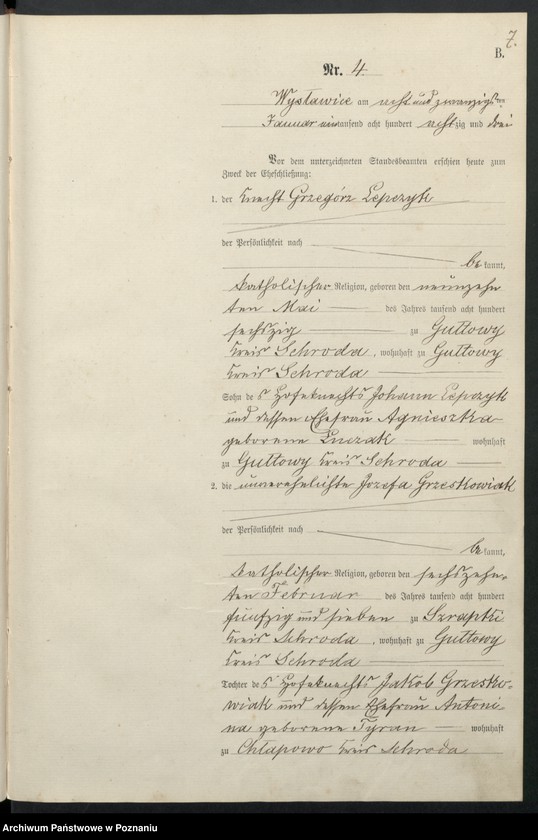 7.
B.
Nr. 4.
Wysławice am acht und zwanzigsten
Januar eintausend acht hundert achtzig und drei
Vor dem unterzeichneten Standesbeamten erschien heute zum
Zweck der Eheschließung:
1. der Knecht Grzegórz Lepczyk
der Persönlichkeit nach
bekannt,
katholischer Religion, geboren den neunzehn
ten Mai des Jahres tausend acht hundert
sechszig zu Guttowy
Kreis Schroda, wohnhaft zu Guttowy
Kreis Schroda
Sohn des Hofeknechts Johann Lepczyk
und dessen Ehefrau Agnieszka
geborene Luczak wohnhaft
zu Guttowy Kreis Schroda
2. die unverehelichte Jozefa Grzeskowiak
der Persönlichkeit nach
bekannt,
katholischer Religion, geboren den sechszehn-
ten Februar des Jahres tausend acht hundert
fünfzig und sieben zu Szrapki
Kreis Schroda, wohnhaft zu Guttowy
Kreis Schroda
Tochter des Hofeknechts Jakob Grzesko-
wiak und dessen Ehefrau Antoni-
na geborene Tyran wohnhaft
zu Chłapowo Kreis Schroda
Archiwum Państwowe w Poznaniu